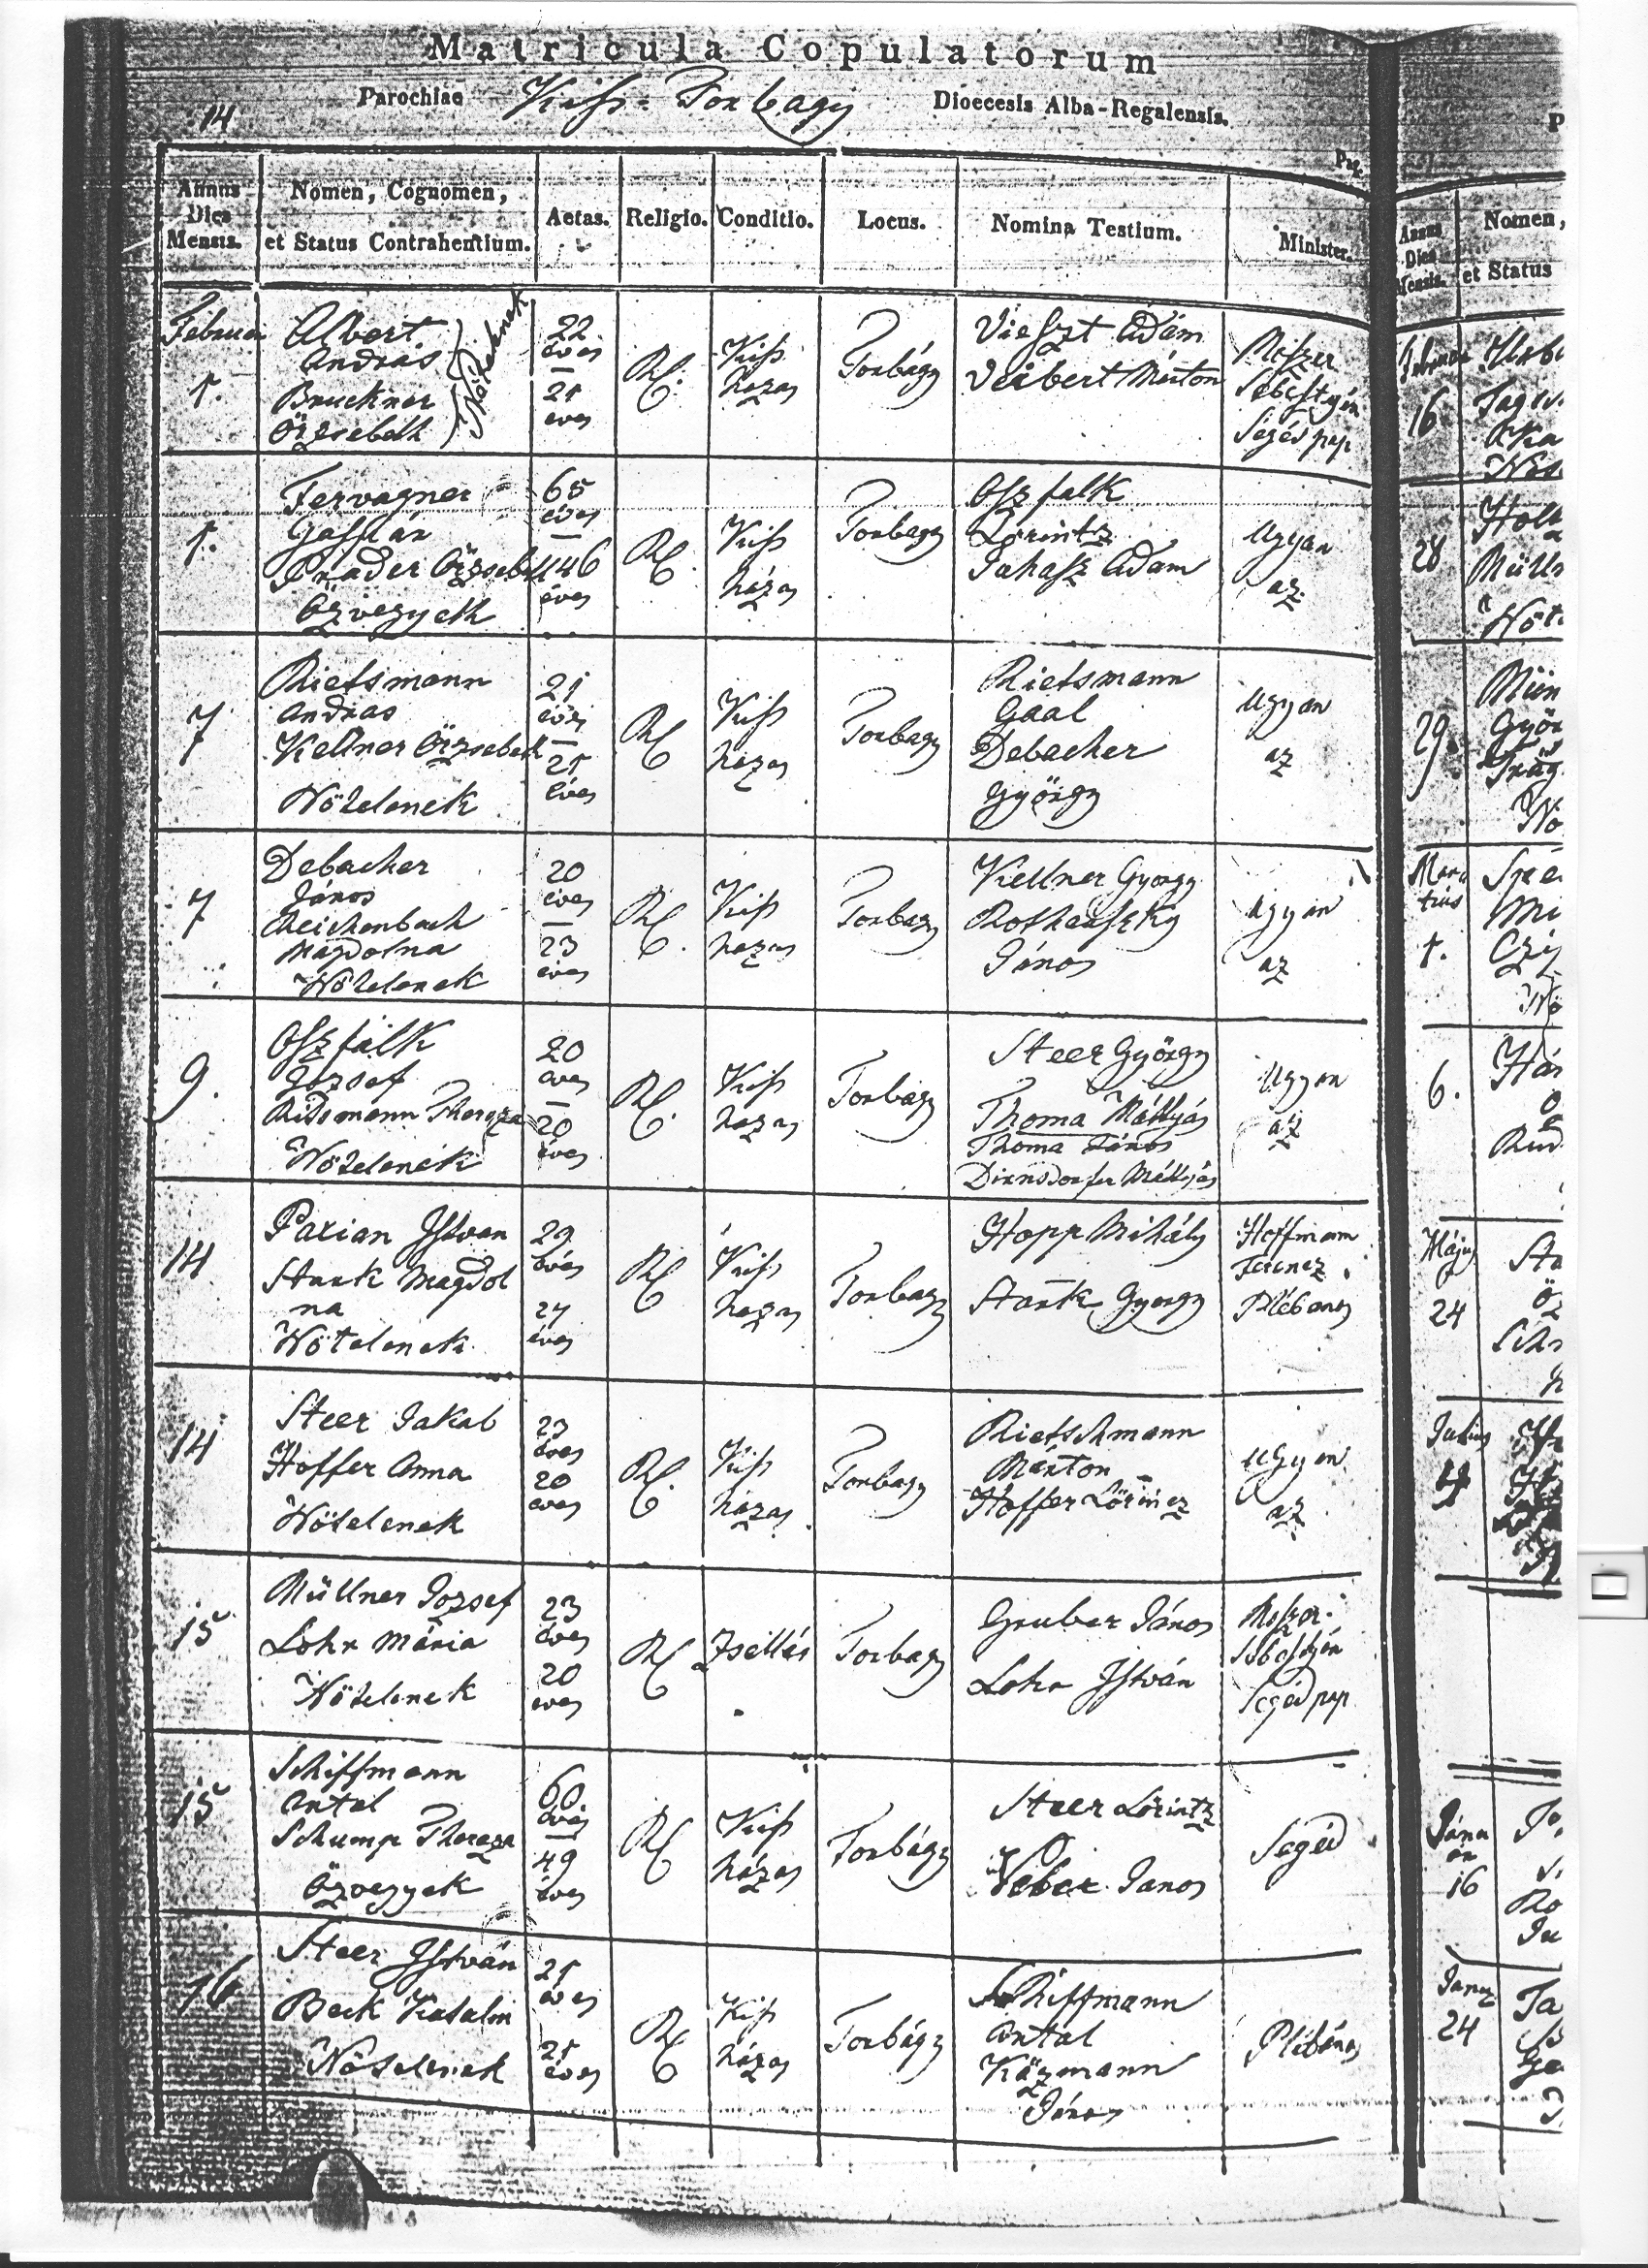 Matricula Copulatorum
Parochiae Kiss-Torbagy Dioecesis Alba-Regalensis.
14
Pag.
Annus Dies Mensis.
Nomen, Cognomen, et Status Contrahentium.
Aetas.
Religio.
Conditio.
Locus.
Nomina Testium.
Minister.
Februar
1.
Albert
András
Bruckner
Örzsébeth
Nőtelenek
22
éves
21
éves
RC.
Kiss
házas
Torbágy
Vieszt Ádám
Veibert Márton
Miszer
Sebestyén
Segéd pap
1.
Fervagner
Gáspár
Prader Örzsebeth
Özvegyek
65
éves
46
éves
RC.
Kiss
házas
Torbagy
Oszfalk
Lőrintz
Juhasz Adam
Ugyan
az
7
Rietsmann
András
Kellner Örzsebeth
Nőtelenek
21
éves
21
éves
RC
Kiss
házas
Torbagy
Rietsmann
Gaal
Debacher
György
Ugyan
az
7
Debacher
János
Reichenbach
Magdolna
Nőtelenek
20
éves
23
éves
RC.
Kiss
hazas
Torbagy
Kellner György
János
Ugyan
az
9.
Oszfalk
Jozsef
Ridsmann Thereza
Nőtelenek
20
éves
20
éves
RC.
Kiss
hazas
Torbágy
Steer György
Thoma Mátyás
Thoma János
Dirnsdorfer Mátyás
Ugyan
az
14
Paxian Istvan
Stark Magdol
na
Nőtelenek
29
éves
24
éves
RC
Kiss
hazas
Torbagy
Hopp Mihály
Stark György
Hoffmann
Ferencz
Plébanos
14
Steer Jakab
Hoffer Anna
Nőtelenek
23
éves
20
éves
RC.
Kiss
házas
Torbagy
Rietschmann
Márton
Hoffer Lőrincz
Ugyan
az
15
Müllner Jozsef
Lohr Mária
Nőtelenek
23
éves
20
éves
RC
Zsellér
Torbagy
Gruber János
Lohr István
Miszer
Sebestyén
Segéd pap
15
Schiffmann
Antal
Schump Thereza
Özvegyek
60
éves
49
éves
RC
Kiss
házas
Torbágy
Steer Lőrintz
Veber Janos
Segéd
16
Steer István
Beck Katalin
Nőtelenek
21
éves
21
éves
RC
Kiss
házas
Torbágy
Schiffmann
Antal
Käzmann
János
Plébános
Annus Dies Mensis.
Nomen,
et Status
16
28
29
Mar
tius
1.
6.
Május
24
Julius
16
24